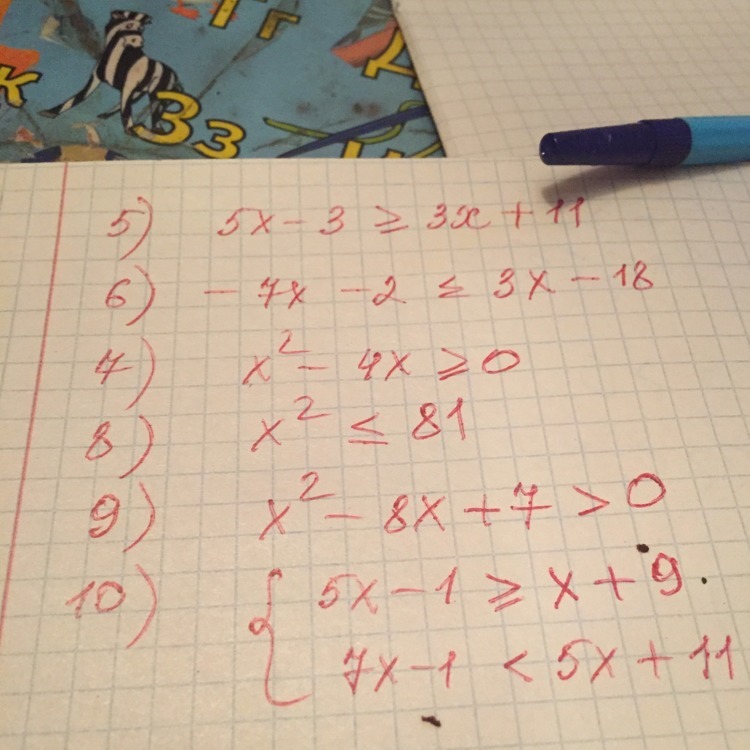 К
Гг
Зз
5) 5x - 3 ≥ 3x + 11
6) - 7x - 2 ≤ 3x - 18
7) x² - 4x ≥ 0
8) x² ≤ 81
9) x² - 8x + 7 > 0
10) { 5x - 1 ≥ x + 9
7x - 1 < 5x + 11